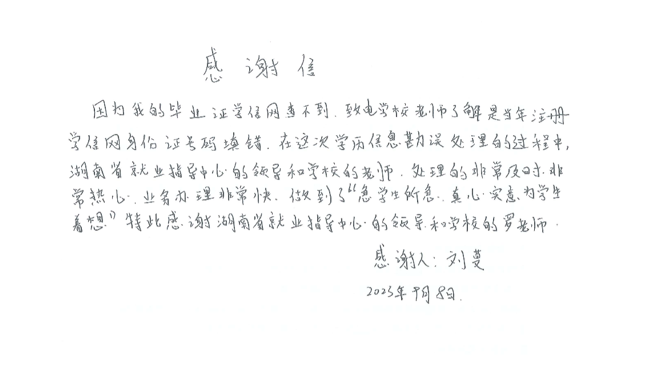 感谢信
因为我的毕业证学信网查不到，致电学校老师了解是当年注册
学信网身份证号码填错，在这次学历信息勘误处理的过程中，
湖南省就业指导中心的领导和学校的老师，处理的非常及时，非
常热心，业务办理非常快，做到了“急学生所急，真心实意为学生
着想”特此感谢湖南省就业指导中心的领导和学校的罗老师．
感谢人：刘蔓
2025年9月8日．